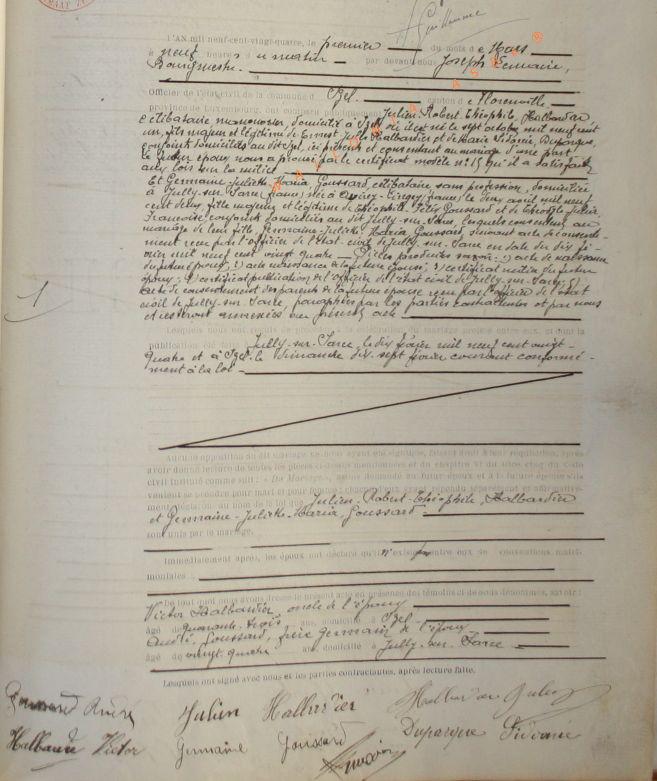 Guillaume
L'AN mil neuf-cent-vingt-quatre, le premier du mois de Mars
à neuf heures du matin par devant nous Joseph Lemaire,
Bourgmestre.
Officier de l'état civil de la commune d'Izel, canton de Florenville
province de Luxembourg, ont comparu publiquement Julien-Robert-Théophile Halbardier
célibataire manouvrier, domicilié à Izel où il est né le sept octobre mil neuf cent
un, fils majeur et légitime de Ernest Jules Halbardier et de Marie Sidonie Duparque,
conjoints domiciliés au dit Izel, ici présents et consentant au mariage d'une part
le futur époux nous a prouvé par le certificat modèle n° 15 qu'il a satisfait
aux lois sur la milice
Et Germaine-Juliette-Maria Goussard, célibataire sans profession, domiciliée
à Jully-sur-Sarce, (France) née à Avirey-Lingey, (France) le deux août mil neuf
cent deux, fille majeure et légitime de Théophile Félix Goussard et de Julia
Françoise conjoints domiciliés au dit Jully-sur-Sarce, lesquels consentent au
mariage de leur fille, Germaine-Juliette Maria Goussard, suivant acte de consente-
ment reçu par l'officier de l'état-civil de Jully-sur-Sarce en date du dix fé-
vrier mil neuf cent vingt quatre — Pièces produites savoir: 1) acte de naissance
du futur époux; 2) acte naissance de la future épouse; 3) certificat milice du futur
époux; 4) certificat publication de l'officier de l'état civil de Jully-sur-Sarce; 5)
acte de consentement des parents de la future épouse reçu par l'officier de l'état
civil de Jully-sur-Sarce, paraphées par les parties contractantes et par nous
et resteront annexées au présent acte
1
Lesquels nous ont requis de procéder à la célébration du mariage projeté entre eux, et dont la
publication Jully-sur-Sarce, le dix février mil neuf cent vingt-
quatre et à Izel, le dimanche dix-sept février courant conformé-
ment à la loi
Aucune opposition au dit mariage ne nous ayant été signifiée, faisant droit à leur réquisition, après
avoir donné lecture de toutes les pièces ci-dessus mentionnées et du chapitre VI du titre cinq du Code
civil intitulé comme suit : « Du Mariage », avons demandé au futur époux et à la future épouse s'ils
veulent se prendre pour mari et pour femme; chacun d'eux ayant répondu séparément et affirmative-
ment déclarons au nom de la loi que Julien-Robert-Théophile Halbardier
et Germaine-Juliette-Maria Goussard
sont unis par le mariage.
Immédiatement après, les époux ont déclaré qu'il n'existe entre eux de conventions matri-
moniales
De tout quoi avons dressé le présent acte en présence des témoins ci-dessous dénommés, savoir :
Victor Halbardier, oncle de l'époux
âgé de quarante-trois ans, domicilié à Izel
André Goussard, frère germain de l'épouse
âgé de vingt-quatre ans, domicilié à Jully-sur-Sarce
Lesquels ont signé avec nous et les parties contractantes, après lecture faite.
Goussard André Julien Halbardier Halbardier Jules
Halbardier Victor Germaine Goussard Duparque Sidonie
Lemaire